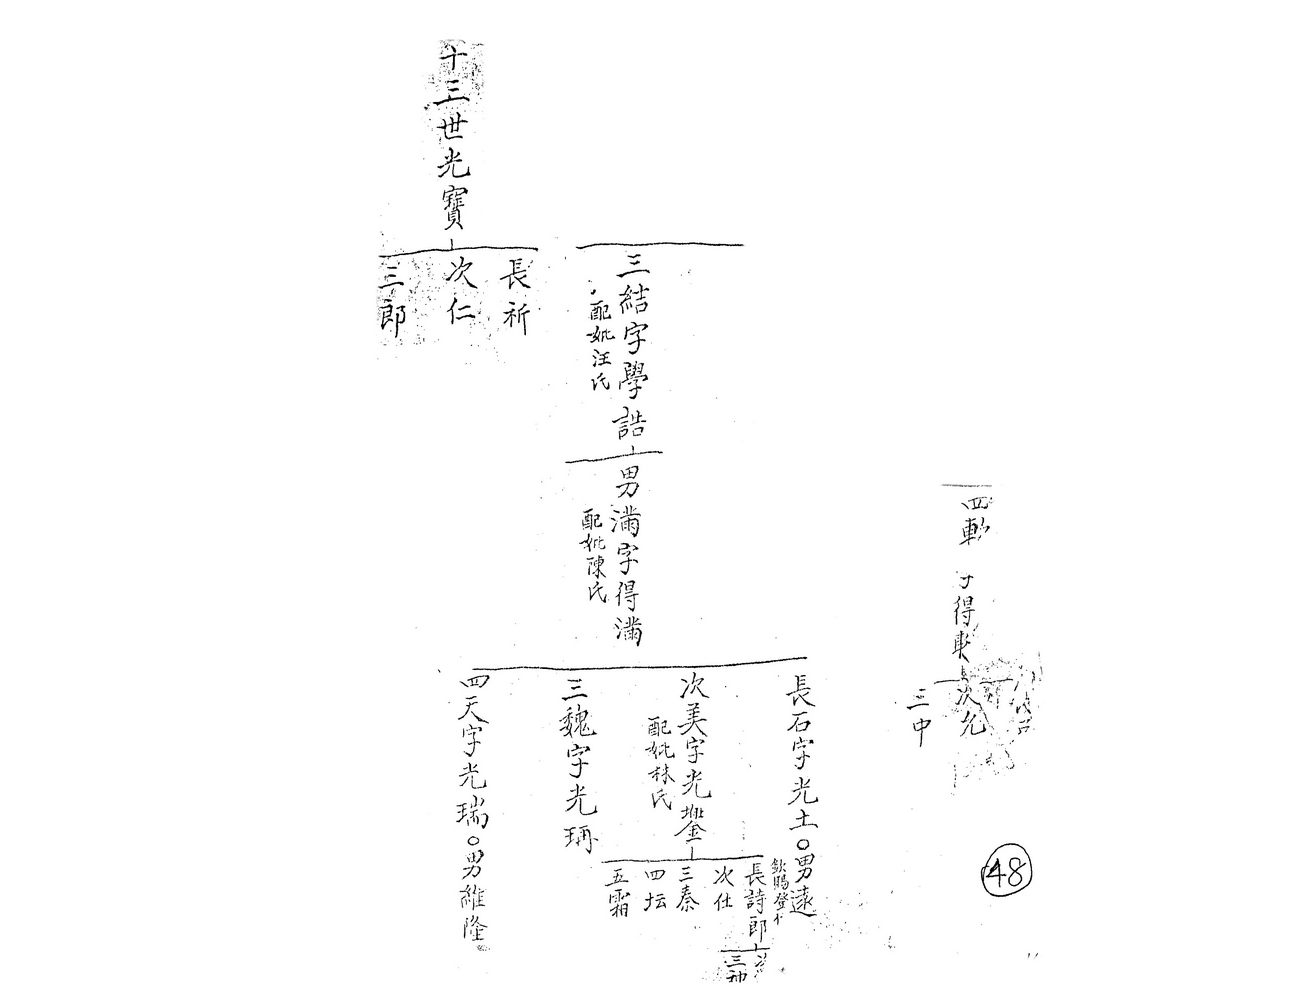 四軟
得
次允
三中
三結字學誥
配妣汪氏
男滿字得滿
配妣陳氏
長石字光土○男遠
欽賜登仕
次美字光鑾
配妣林氏
長詩郎
次仕
三秦
四坛
五霜
三种
三魏字光瑀
四天字光瑞○男維隆
十三世光寶
長祈
次仁
三郎
48